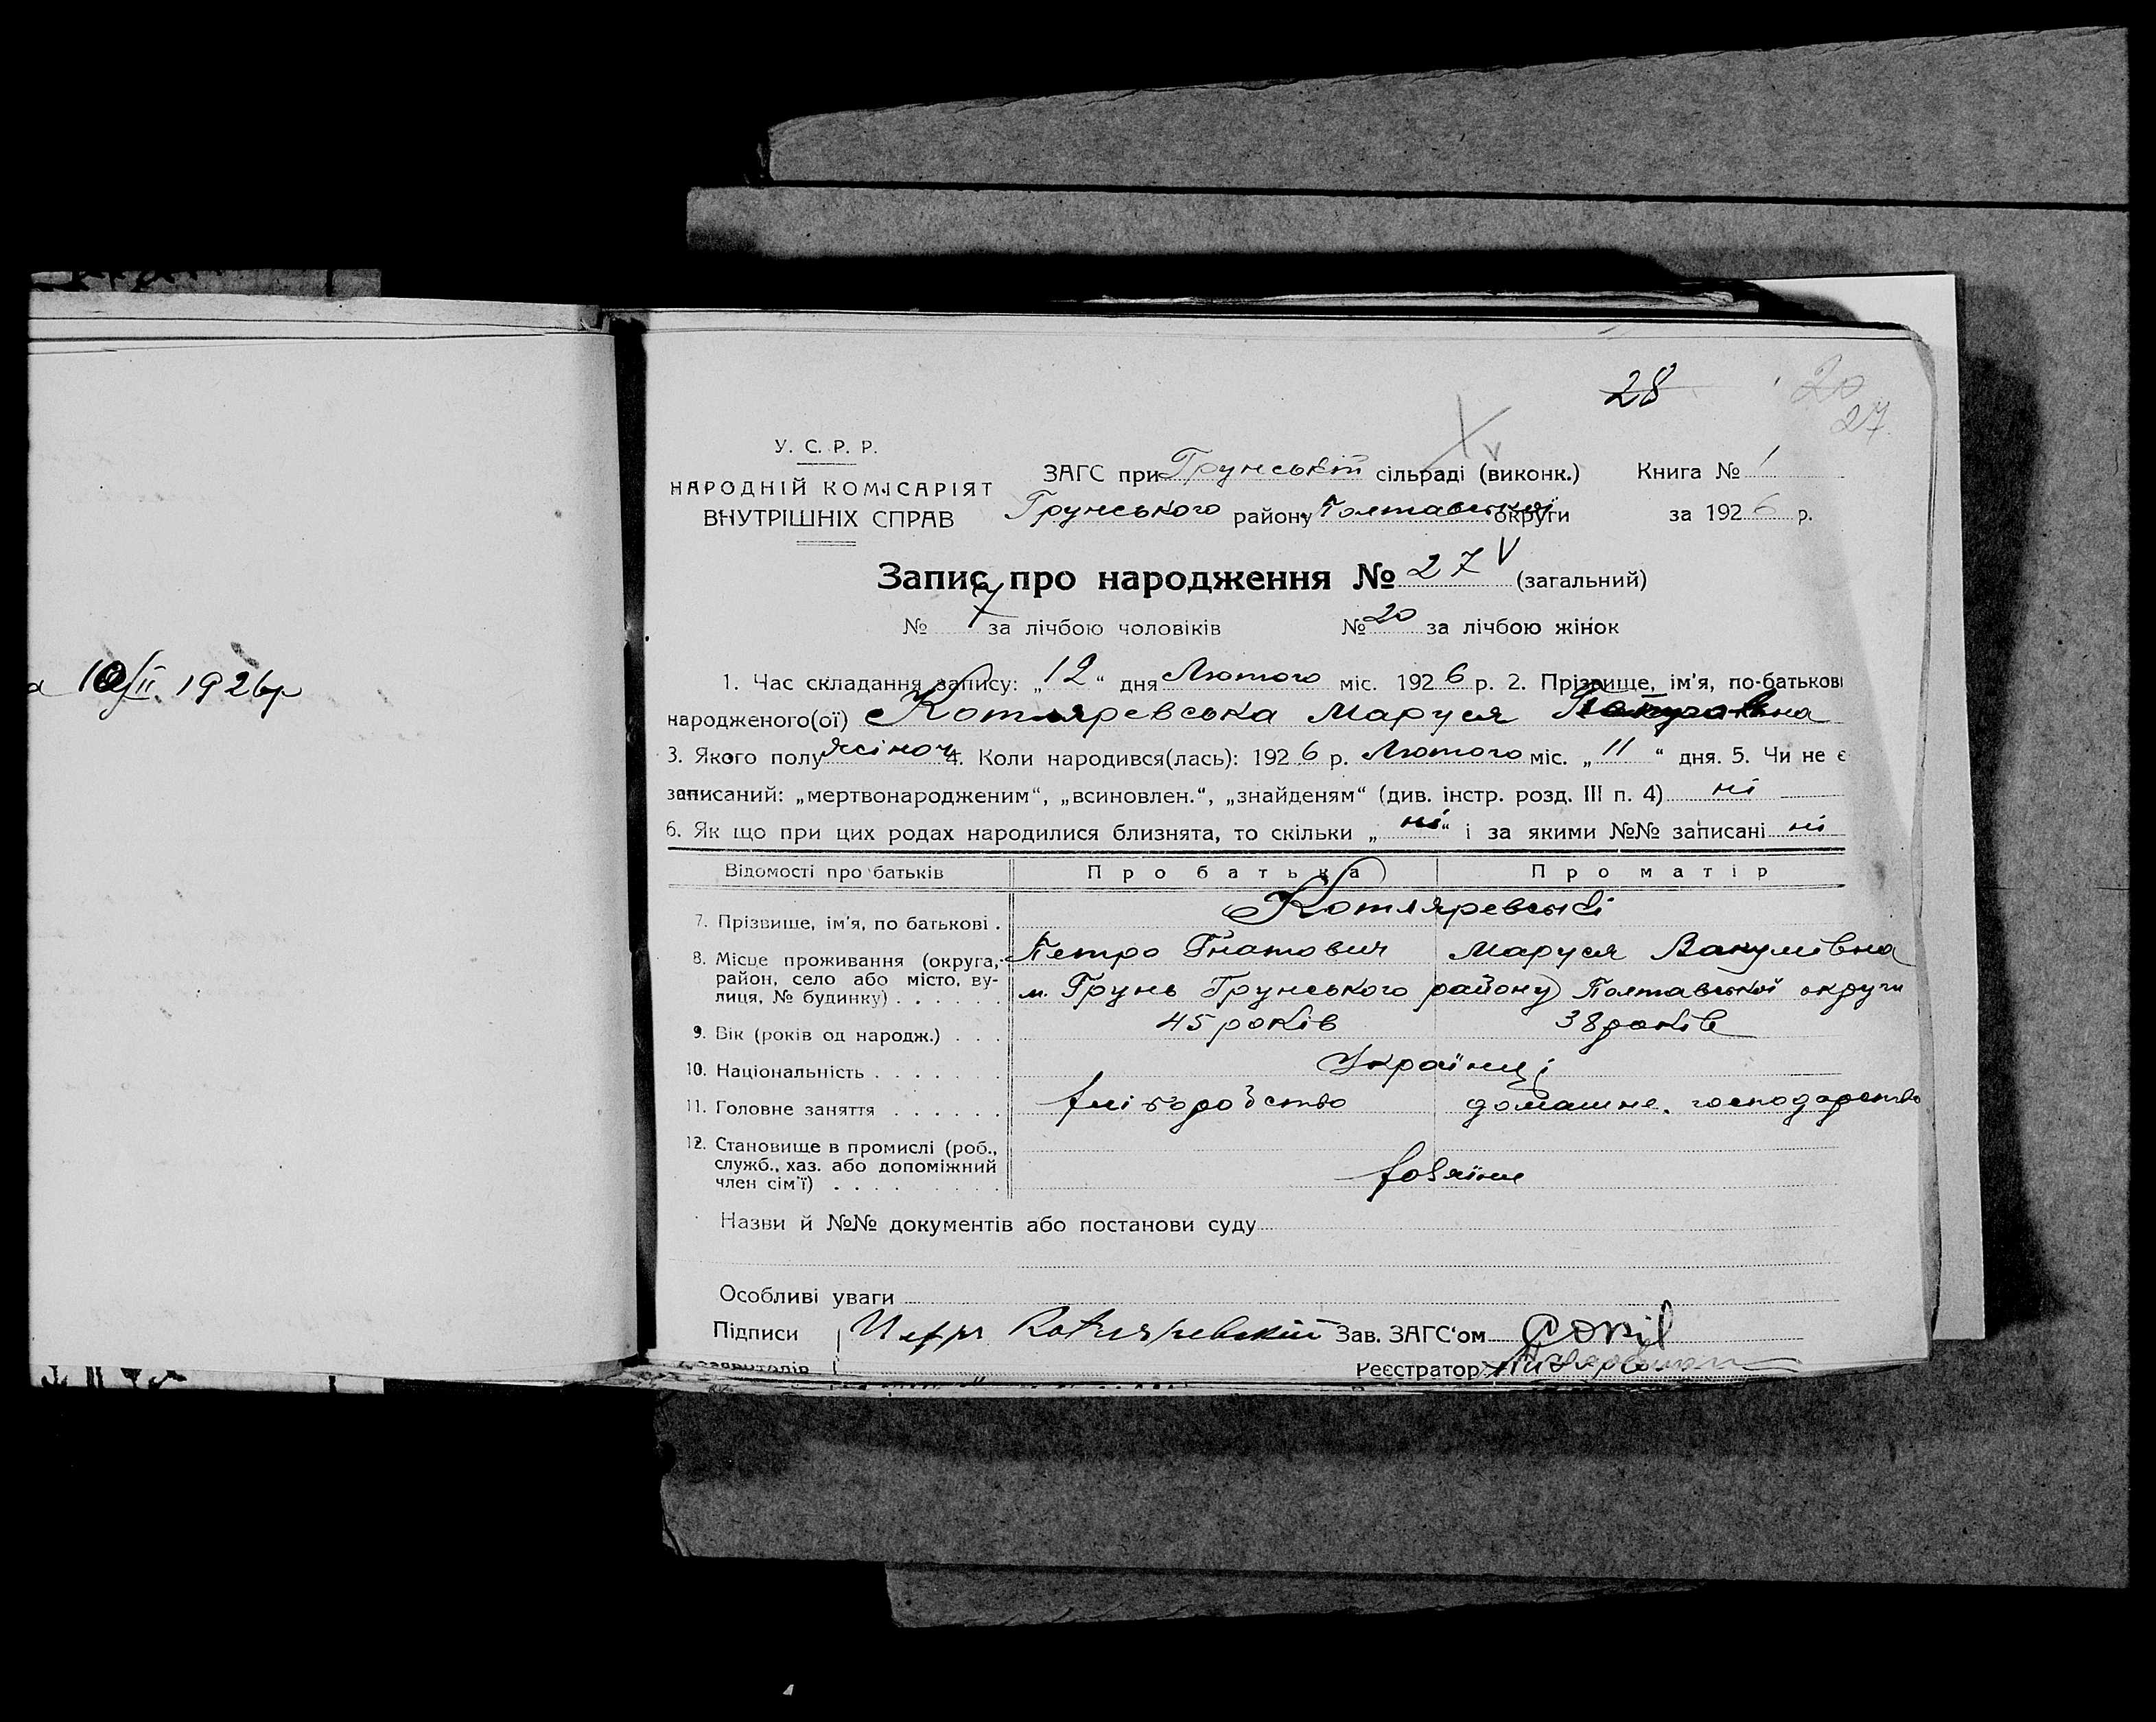 28
20
27.
У. С. Р. Р.
НАРОДНІЙ КОМІСАРІЯТ
ВНУТРІШНІХ СПРАВ
ЗАГС при Грунській сільраді (виконк.) Книга № 1
Грунського району Полтавської округи за 1926 р.
Запис про народження № 27 V (загальний)
№ за лічбою чоловіків № 20 за лічбою жінок
а 10/II. 1926р
1. Час складання запису: „12“ дня Лютого міс. 1926 р. 2. Прізвище, ім'я, по-батькові
народженого(ої) Котляревська Маруся
3. Якого полу жіноч 4. Коли народився(лась): 1926 р. Лютого міс. „11“ дня. 5. Чи не є
записаний: „мертвонародженим“, „всиновлен.“, „знайденям“ (див. інстр. розд. III п. 4) ні
6. Як що при цих родах народилися близнята, то скільки „ні“ і за якими №№ записані ні
Відомості про батьків Про батька Про матір
7. Прізвище, ім'я, по батькові . Котляревські
Петро Гнатович Маруся Вакулівна
8. Місце проживання (округа,
район, село або місто, ву-
лиця, № будинку) . . . . . . м. Грунь Грунського району Полтавської округи
9. Вік (років од народж.) . . . 45 років 38 років
10. Національність . . . . . . . Українці
11. Головне заняття . . . . . . хліборобство домашнє. господарство
12. Становище в промислі (роб.,
служб., хаз. або допоміжний
член сім'ї) . . . . . . . . хазяїни
Назви й №№ документів або постанови суду
Особливі уваги
Підписи Петр Котляревский Зав. ЗАГС'ом
заявителів Реєстратор